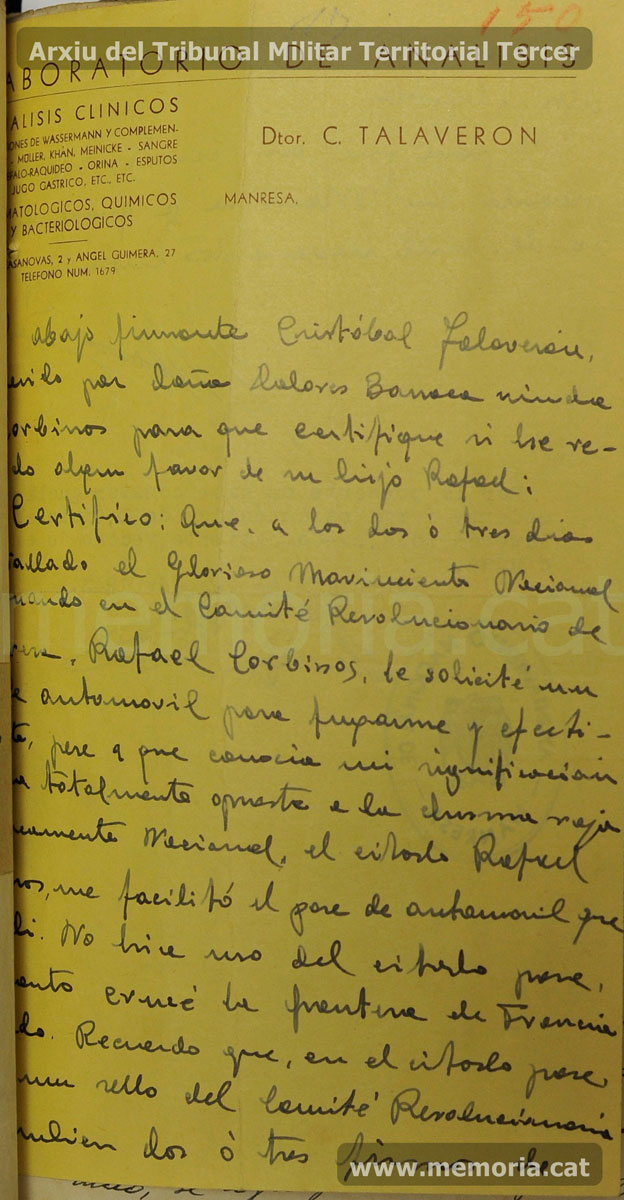 150
Arxiu del Tribunal Militar Territorial Tercer
ABORATORIO DE ANALISIS
ALISIS CLINICOS
ONES DE WASSERMANN Y COMPLEMEN-
MÜLLER, KHAN, MEINICKE - SANGRE
FALO-RAQUIDEO - ORINA - ESPUTOS
JUGO GASTRICO, ETC., ETC.
MATOLOGICOS, QUIMICOS
Y BACTERIOLOGICOS
ASANOVAS, 2 y ANGEL GUIMERA, 27
TELEFONO NUM. 1679
Dtor. C. TALAVERON
MANRESA,
abajo firmante Cristóbal Talaverón,
por doña Dolores viuda
orbinos para que certifique si he re-
do algún favor de su hijo Rafael:
Certifico: Que, a los dos ó tres dias
tallado el Glorioso Movimiento Nacional
uando en el Comité Revolucionario de
resa, Rafael Corbinos, le solicité un
e automovil para fugarme y efecti-
te, pese a que conocia mi significación
a totalmente opuesta a la chusma roja
camente Nacional, el citado Rafael
nos, me facilitó el pase de automovil que
di. No hice uso del citado pase,
anto crucé la frontera de Francia
do. Recuerdo que, en el citado pase,
un sello del Comité Revolucionario
mbien dos ó tres firmas de
memoria.cat
www.memoria.cat